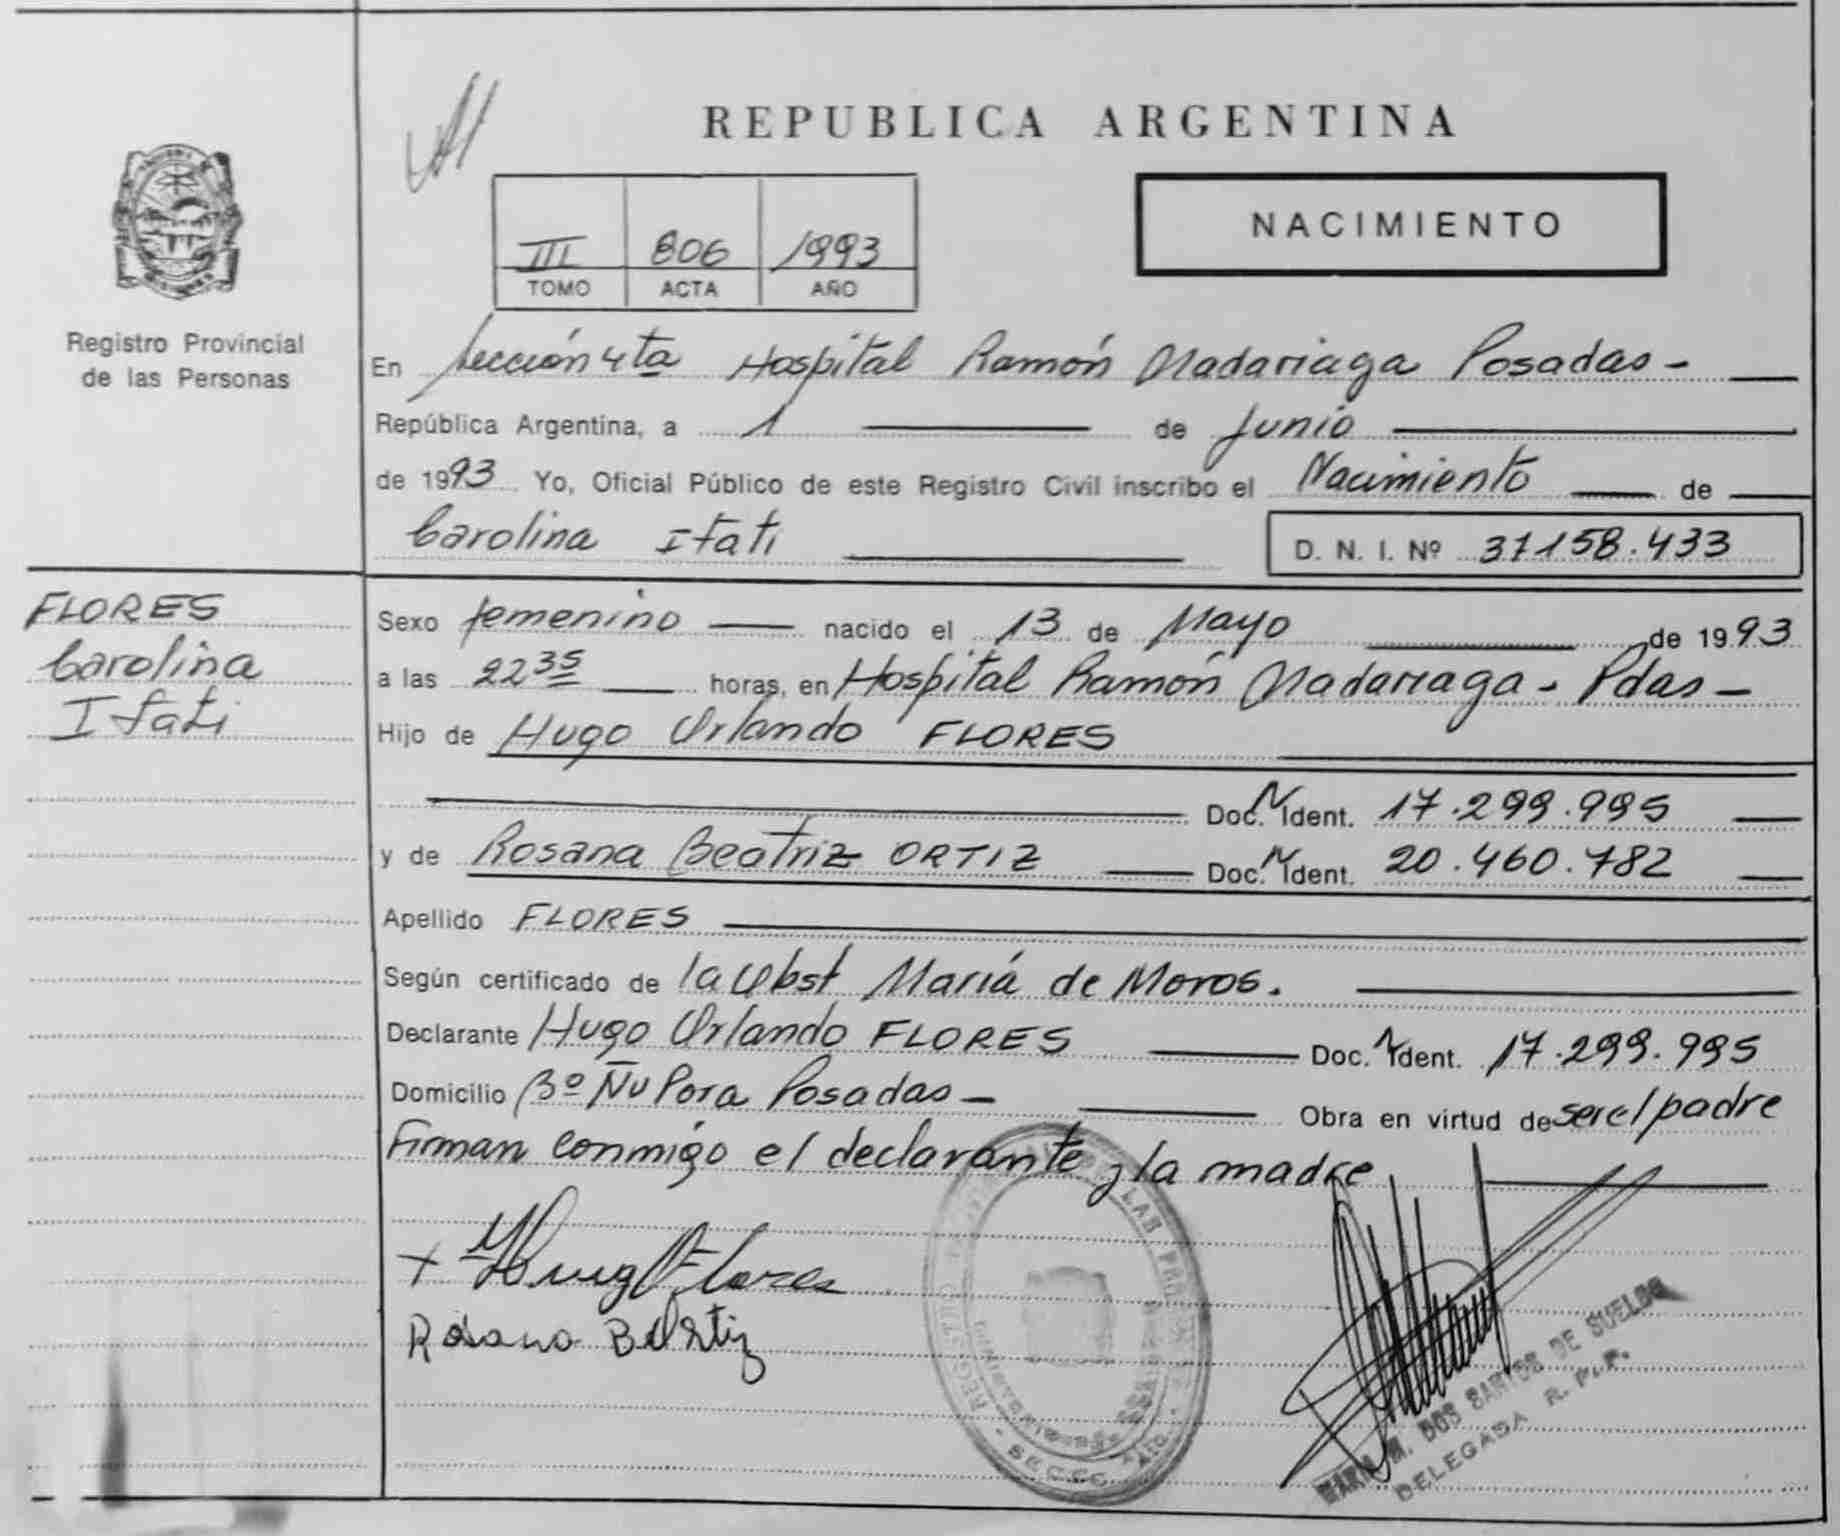 REPUBLICA ARGENTINA
NACIMIENTO
III 806 1993
TOMO ACTA AÑO
Registro Provincial
de las Personas
En Sección 4ta Hospital Ramón Madariaga Posadas -
República Argentina, a 1 de Junio
de 1993 Yo, Oficial Público de este Registro Civil inscribo el Nacimiento de
Carolina Itati D. N. I. Nº 37158.433
FLORES
Carolina
Itati
Sexo femenino nacido el 13 de Mayo de 1993
a las 22 35 horas, en Hospital Ramón Madariaga - Pdas -
Hijo de Hugo Orlando FLORES
Doc. N Ident. 17.299.995
y de Rosana Beatriz ORTIZ Doc. N Ident. 20.460.782
Apellido FLORES
Según certificado de la Obst María de Moros.
Declarante Hugo Orlando FLORES Doc. N Ident. 17.299.995
Domicilio Bº Ñu Pora Posadas - Obra en virtud de ser el padre
Firman conmigo el declarante y la madre
Flores
Rosana B Ortiz
DOS SANTOS DE SUELDO
DELEGADA R. P. P.